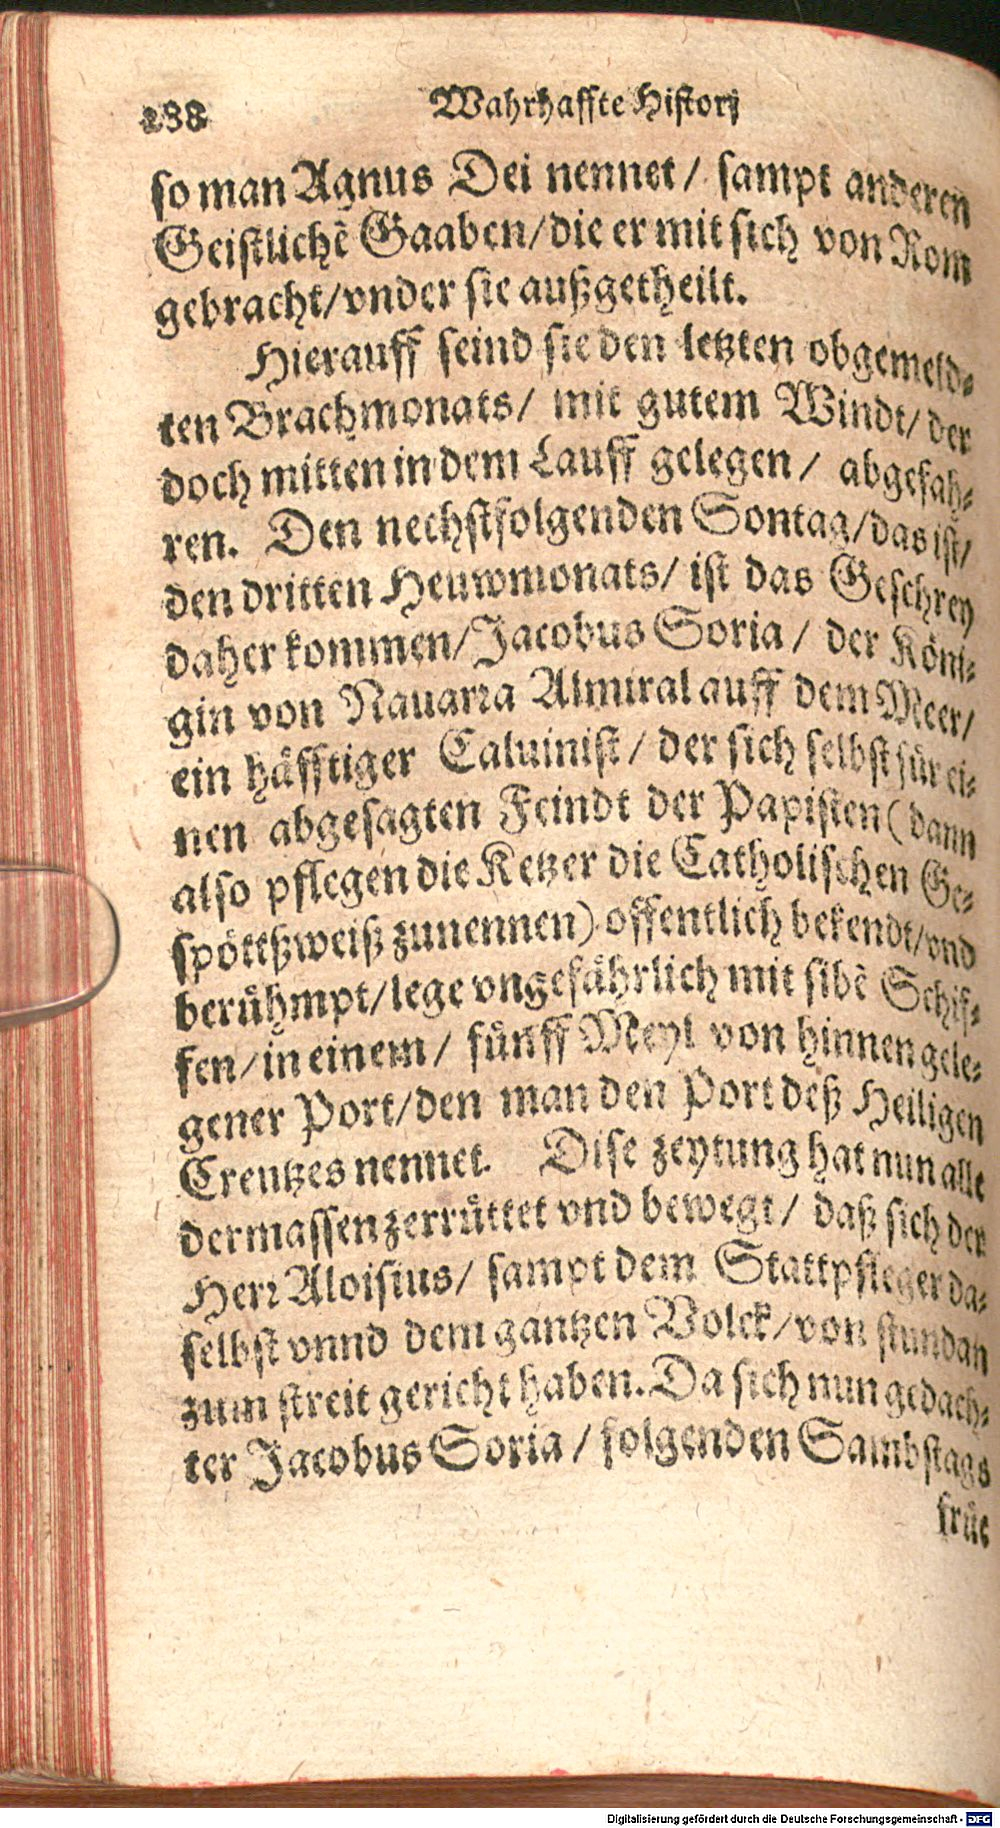 288 Wahrhaffte Historj
so man Agnus Dei nennet / sampt anderen
Geistlichẽ Gaaben/die er mit sich von Rom
gebracht/vnder sie außgetheilt.
Hierauff seind sie den letzten obgemeld-
ten Brachmonats/ mit gutem Windt/ der
doch mitten in dem Lauff gelegen / abgefah-
ren. Den nechstfolgenden Sontag/das ist/
den dritten Heuwmonats/ ist das Geschrey
daher kommen/Jacobus Soria / der Köni-
gin von Nauarra Almiral auff dem Meer/
ein häfftiger Caluinist / der sich selbst für ei-
nen abgesagten Feindt der Papisten (dann
also pflegen die Ketzer die Catholischen Ge-
spöttßweiß zunennen) offentlich bekendt/vnd
berühmpt/lege vngefährlich mit sibẽ Schif-
fen/in einem/ fünff Meyl von hinnen gele-
gener Port/den man den Port deß Heiligen
Creutzes nennet. Dise zeytung hat nun alle
dermassen zerrüttet vnd bewegt / daß sich der
Herr Aloisius/ sampt dem Stattpfleger da-
selbst vnnd dem gantzen Volck/von stundan
zum streit gericht haben. Da sich nun gedach-
ter Jacobus Soria / folgenden Sambstags
früe
Digitalisierung gefördert durch die Deutsche Forschungsgemeinschaft - DFG